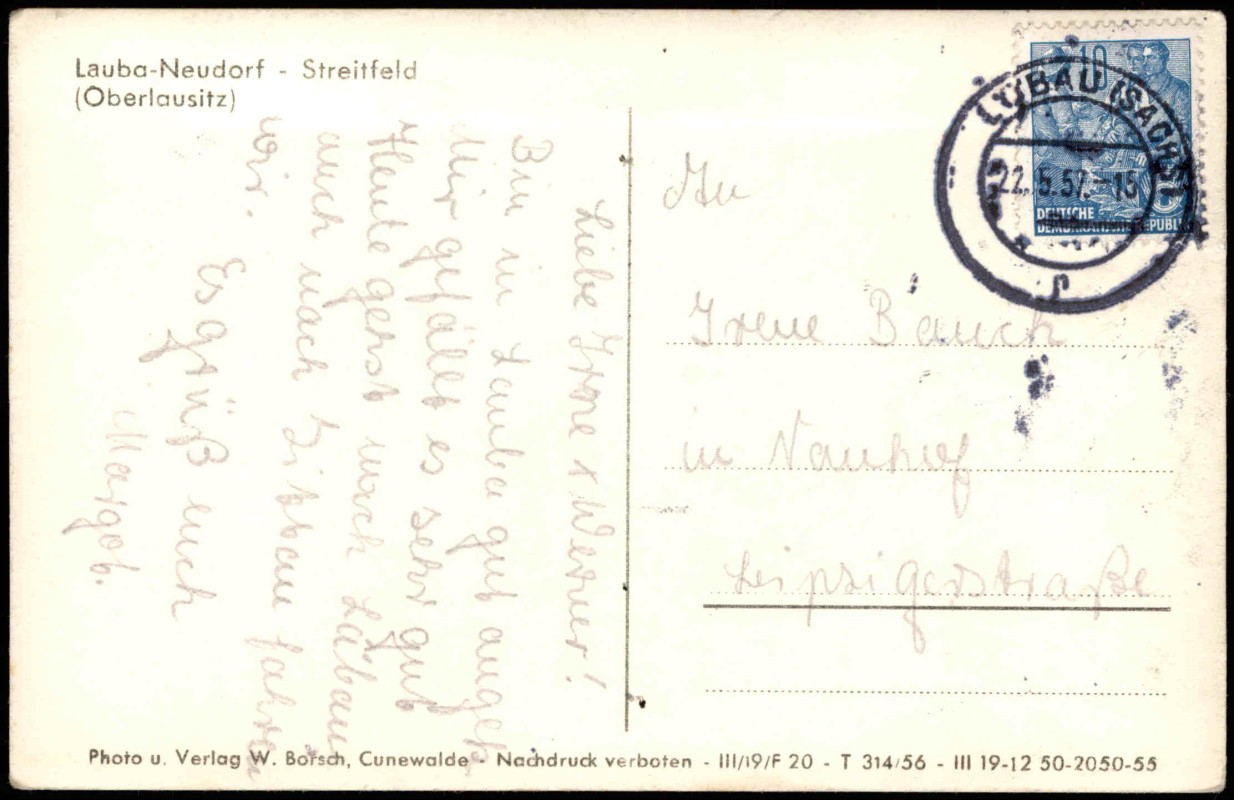 Lauba-Neudorf - Streitfeld
(Oberlausitz)
Liebe Irene + Werner!
Bin in Lauba gut angek.
Mir gefällt es sehr gut
Heute gehst nach Löbau
auch nach Zittau fahren
wir.
Es grüß euch
Margot.
10
DEUTSCHE
DEMOKRATISCHE REPUBLIK
LÖBAU (SACHS)
22.5.57.-15
An
Irene Bauch
in Naunhof
Leipzigerstraße
Photo u. Verlag W. Börsch, Cunewalde - Nachdruck verboten - III/19/F 20 - T 314/56 - III 19-12 50-2050-55